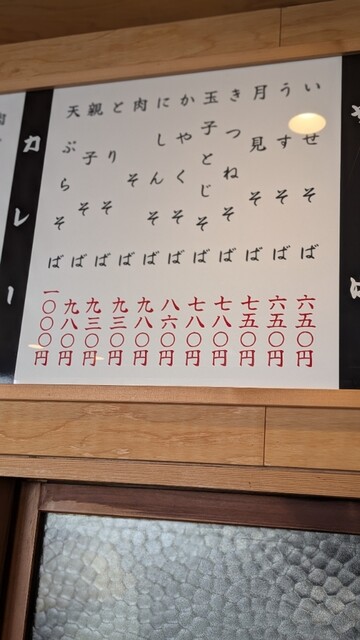 いせそば 六五〇円
うすそば 六五〇円
月見そば 七五〇円
きつねそば 七八〇円
玉子とじそば 七八〇円
かやくそば 八六〇円
にしんそば 九八〇円
肉そば 九三〇円
とりそば 九三〇円
親子そば 九八〇円
天ぷらそば 一〇〇〇円
カレー